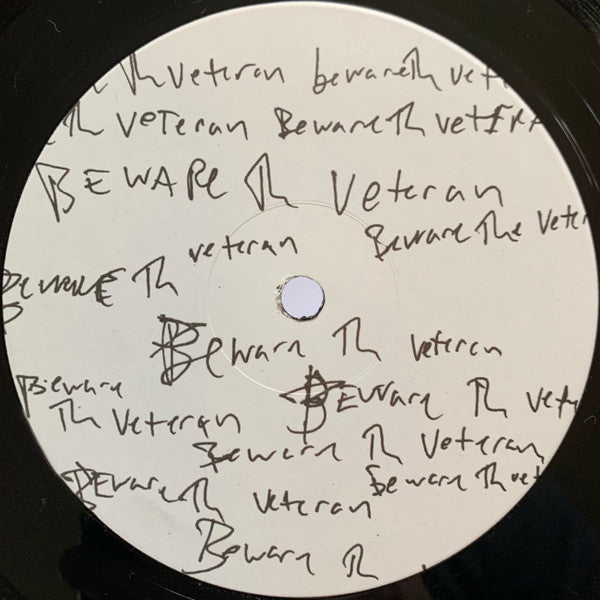 Th Veteran bewareTh vet
Th VeTeran BewareTh vetERA
BEWARe Th Veteran
veteran Beware The Veter
BEWARE Th
Beware Th veteran
Beware BEWare Th vet
Th Veteran
Beware Th Veteran
BEware Th veteran Beware Th vet
Beware Th